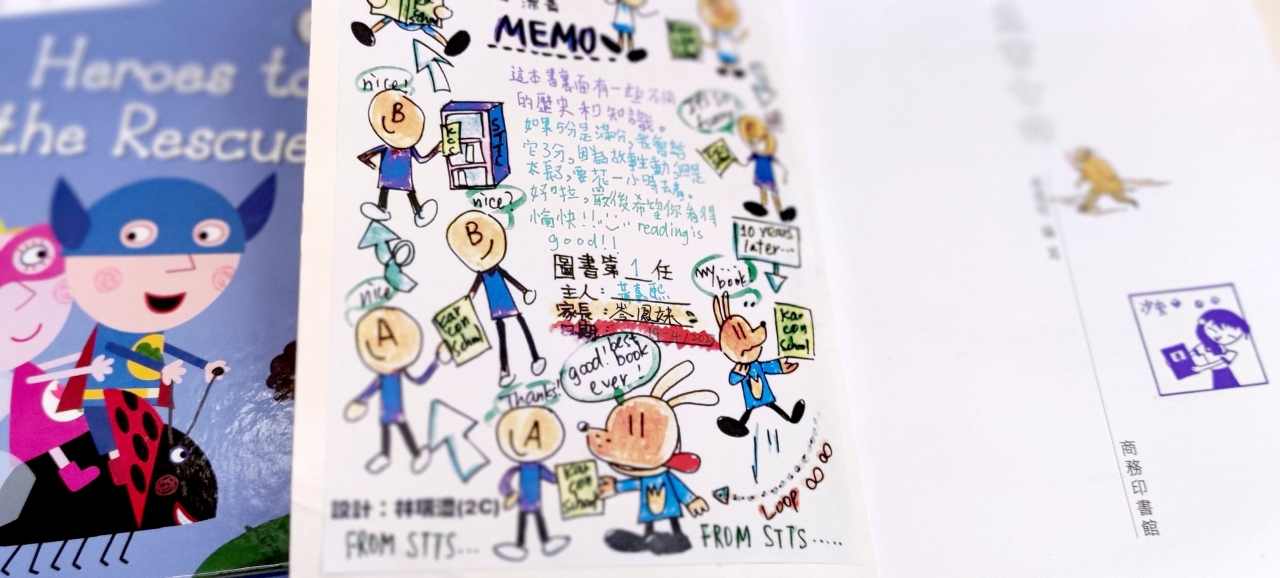 Heroes to
the Rescue
MEMO
這本書裏面有一些不同
的歷史和知識。
如果5分是滿分，我會給
它3分，因為故事生動，但是
太長了，要花一小時去看。
好啦，最後希望你看得
愉快!! reading is
good!!
圖書第 1 任
主人：
家長：岑鳳妹
日期：
nice!
B
STTS
nice?
B
nice
A
Kar
con
school
Thanks!
A
good! best
book
ever!
Kar
con
school
10 years
later...
my book
Kar
con
school
LOOP ∞ ∞
設計：林瑞澧(2C)
FROM STTS...
FROM STTS.....
沙金
商務印書館